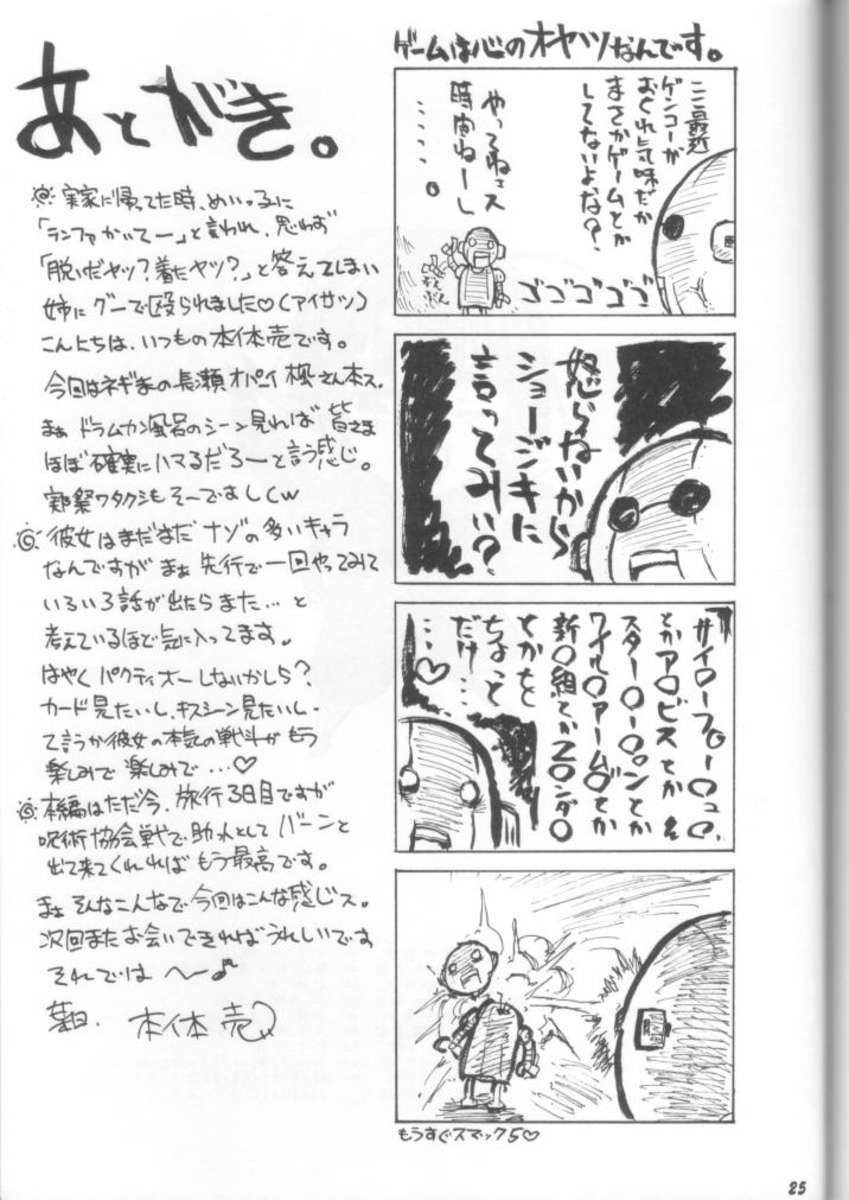 あとがき。
実家に帰ってた時、めいっ子に
「ランファかいてー」と言われ、思わず
「脱いだヤツ?着たヤツ?」と答えてしまい
姉にグーで殴られました♡(アイサツ)
こんにちは、いつもの本体売です。
今回はネギまの長瀬オパイ楓さん本ス。
まぁドラムカン風呂のシーン見れば皆さま
ほぼ確実にハマるだろーと言う感じ。
実祭ワタクシもそーでましたw
彼女はまだまだナゾの多いキャラ
なんですがまぁ先行で一回やってみて
いろいろ話が出たらまた…と
考えているほで気に入ってます。
はやくパクティオーしないかしら?
カード見たいし、キスシーン見たいし、
て言うか彼女の本気の戦斗がもう
楽しみで楽しみで…♡
本編はただ今、旅行3日目ですが
呪術協会戦で助っ人としてバーンと
出て来てくれればもう最高です。
まぁそんなこんなで今回はこんな感じス。
次回またお会いできればうれしいです
それでは〜♪
草日. 本体売
ゲームは心のオヤツなんです。
ここ最近
ゲンコーが
おくれ気味だが
まさかゲームとか
してないよな?
やってねェス
時間ねーし
……。
ゴゴゴゴゴ
怒らないから
ショージキに
言ってみい?
サイ〇ーフ〇ー〇ュ〇、
とかア〇ビスとか
スター〇ー〇ョンとか
ワイル〇アーム〇とか
新〇組とかZ〇ンダ〇
とかを
ちょっと
だけ…
…♡
もうすぐスマック5♡
25